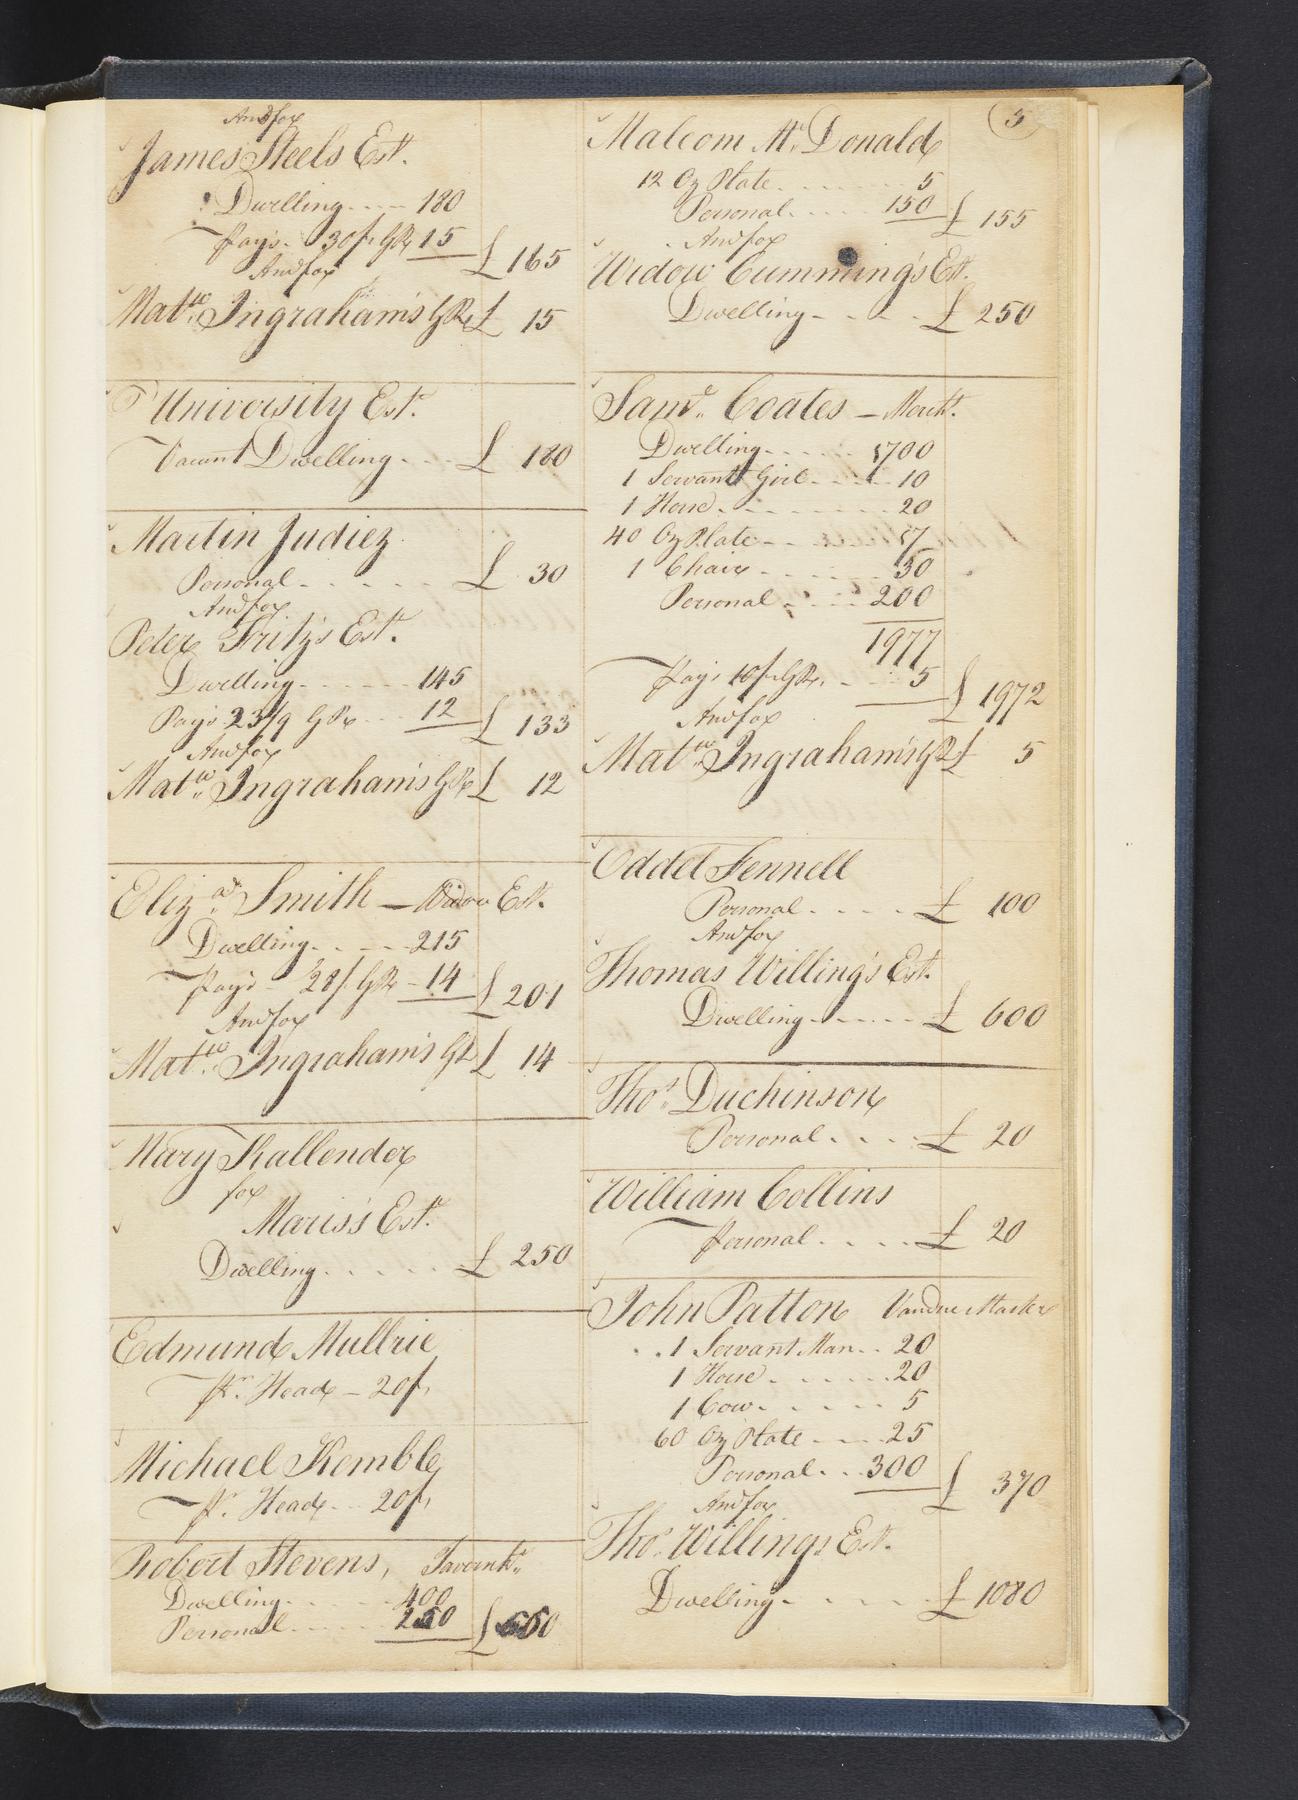 And for
James Steels Estt.
Dwelling .... 180
Pays. 30/. GRt 15 £ 165
And for
Mattw. Ingraham's GRt £ 15
University Estt.
Vacant Dwelling ... £ 180
Martin Judiez
Personal ..... £ 30
And for
Peter Fritz's Estt.
Dwelling ...... 145
Pays 23/9 GRt ... 12 £ 133
And for
Mattw. Ingraham's GRt £ 12
Elizath. Smith — Widow Estt.
Dwelling ..... 215
Pays - 28/. GRt - 14 £ 201
And for
Mattw. Ingraham's GRt £ 14
Mary Kallender
for
Maris's Estt.
Dwelling ..... £ 250
Edmund Mullrie
Pr. Head — 20/.
Michael Kemble
Pr. Head ... 20/.
Robert Stevens, Tavernkr.
Dwelling ..... 400
Personal .....
5
Malcom Mc. Donald
12 Oz Plate ..... 5
Personal ..... 150 £ 155
And for
Widow Cumming's Estt.
Dwelling - - - £ 250
Saml. Coates — Mercht.
Dwelling ..... 1700
1 Servant Girl ... 10
1 Horse ....... 20
40 Oz Plate ..... 17
1 Chair ..... 30
Personal ..... 200
1977
Pays 10/. GRt. ... 5 £ 1972
And for
Mattw. Ingraham's GRt £ 5
Oddel Fennell
Personal .... £ 100
And for
Thomas Willing's Estt.
Dwelling ...... £ 600
Thos. Duchinson
Personal .... £ 20
William Collins
Personal .... £ 20
John Patton Vandue Master
1 Servant Man .. 20
1 Horse ...... 20
1 Cow ..... 5
60 Oz Plate .... 25
Personal ... 300 £ 370
And for
Thos. Willings Estt.
Dwelling ..... £ 1080